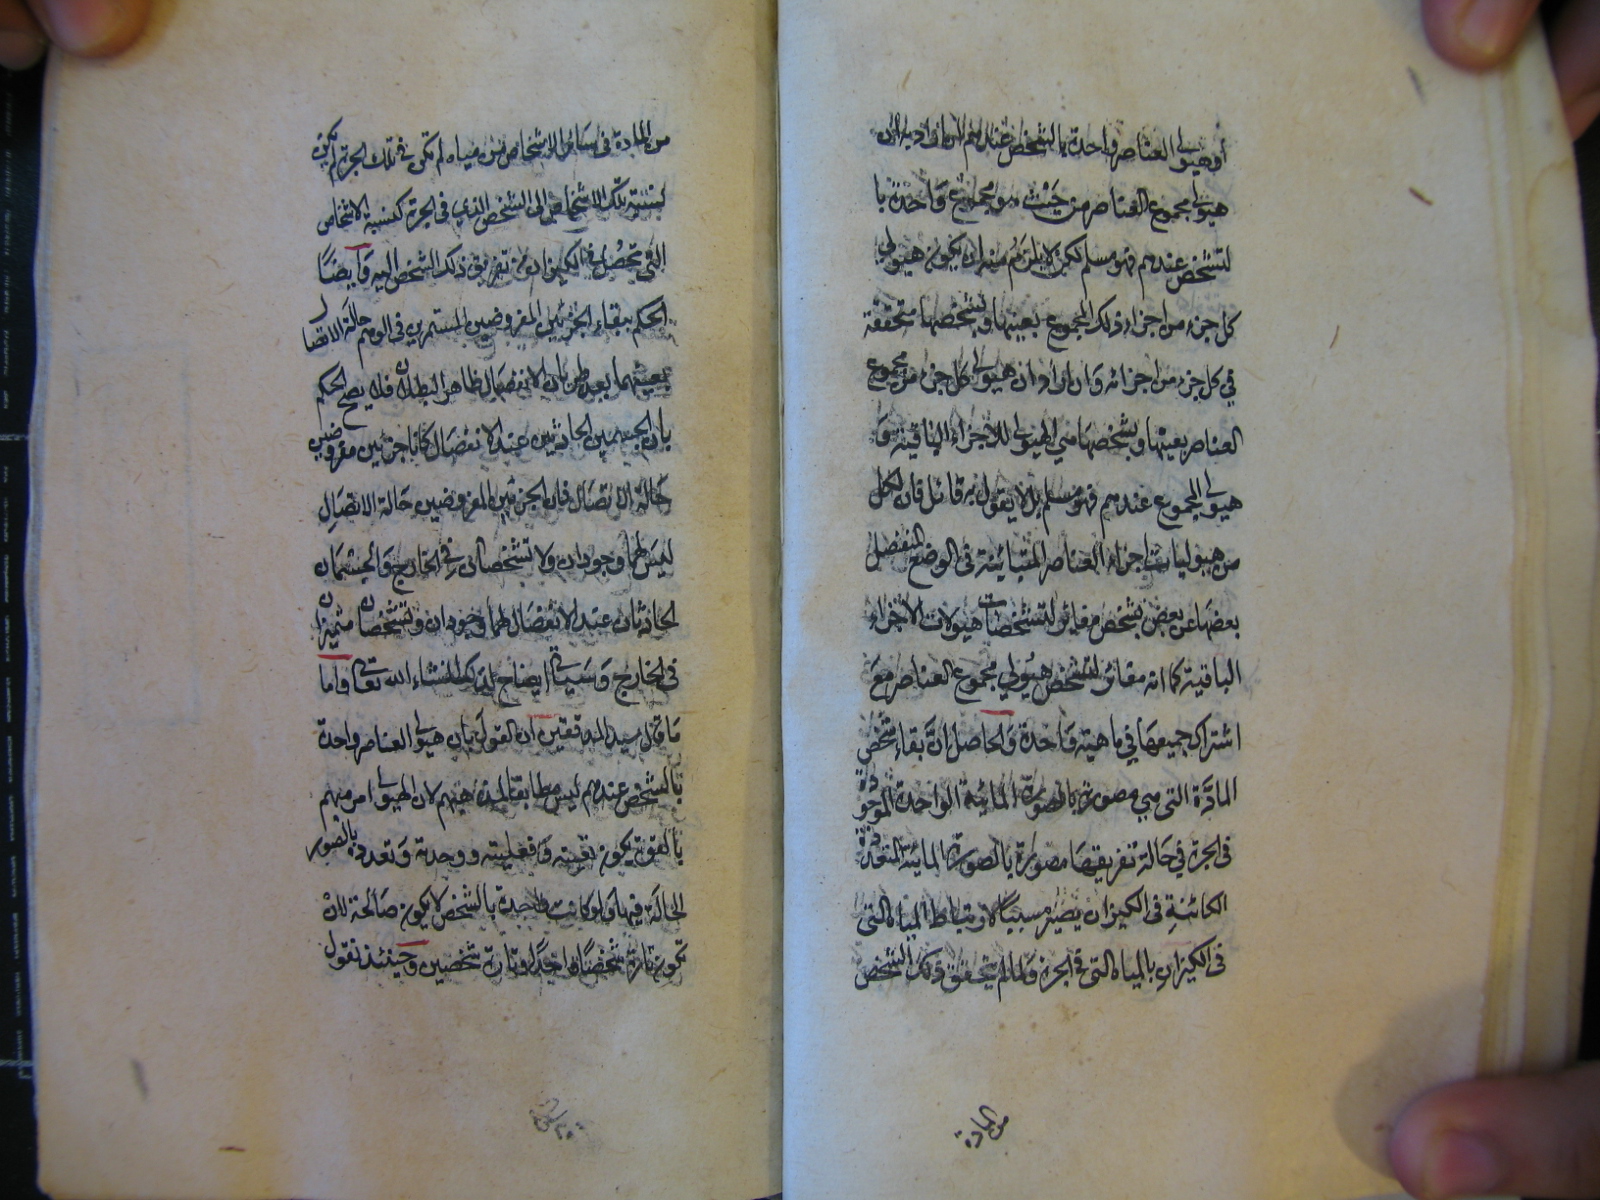 أو هيولي العناصر واحدة بالشخص عندهم ان اراد به ان
هيولي مجموع العناصر من حيث هو مجموع واحدة با
لتشخص عندهم فهو مسلم لكن لا يلزم منه ان يكون هيولي
كل جزء من اجزاء ذلك المجموع بعينها وبشخصها متحققة
في كل جزء من اجزائه وان اراد ان هيولي كل جزء من مجموع
العناصر بعينها وبشخصها هي الهيولي للاجزاء الباقية و
هيولي المجموع عندهم فهو مسلم بل لا يقول به قائل فان لكل
من هيوليات اجزاء العناصر المتباينة في الوضع المنفصل
بعضها عن بعض بشخص مغاير لتشخصات هيولات الاجزاء
الباقية كما انه مغاير لتشخص هيولي مجموع العناصر مع
اشتراك جميعها في ماهية واحدة والحاصل ان بقاء شخص
المادة التي هي مصورة بالصورة المائية الواحدة الموجودة
في الجرة في حالة تفريقها مصورة بالصورة المائية المتعددة
الكائنة في الكيزان يصير سببا لارتباط المياه التي
في الكيزان بالمياه التي في الجرة ولما لم يتحقق ذلك الشخص
من المادة
من المادة في سائر الاشخاص من مياه لم تكن في تلك الجرة لم تكن
نسبة تلك الاشخاص الى الشخص الذي في الجرة كنسبة الاشخاص
التي تحصل في الكيزان من تفريق ذلك الشخص اليه وايضا
الحكم ببقاء الجزئين المفروضين المستمرين في الوهم حالة الاتصال
بعينهما بعد طريان الانفصال ظاهر البطلان فلا يصح الحكم
بان الجسمين الحادثين عند الانفصال كانا جزئين مفروضين
حالة الاتصال فان الجزئين المفروضين حالة الاتصال
ليس لهما وجودان ولا تشخصان في الخارج والجسمان
الحادثان عند الانفصال لهما وجودان وتشخصان متميزان
في الخارج وسيأتي ايضاح لذلك انشاء الله تعالى واما
ما قال سيد المدققين ان القول بان هيولي العناصر واحدة
بالشخص عندهم ليس مطابقا لمذهبهم لان الهيولي امر مبهم
بالقوة يكون تعينه وفعليته ووحدته وتعدده بالصور
الحالة فيها ولو كانت واحدة بالشخص لا يكون صالحة لان
تكون تارة شخصا واحدا وتارة شخصين وحينئذ نقول